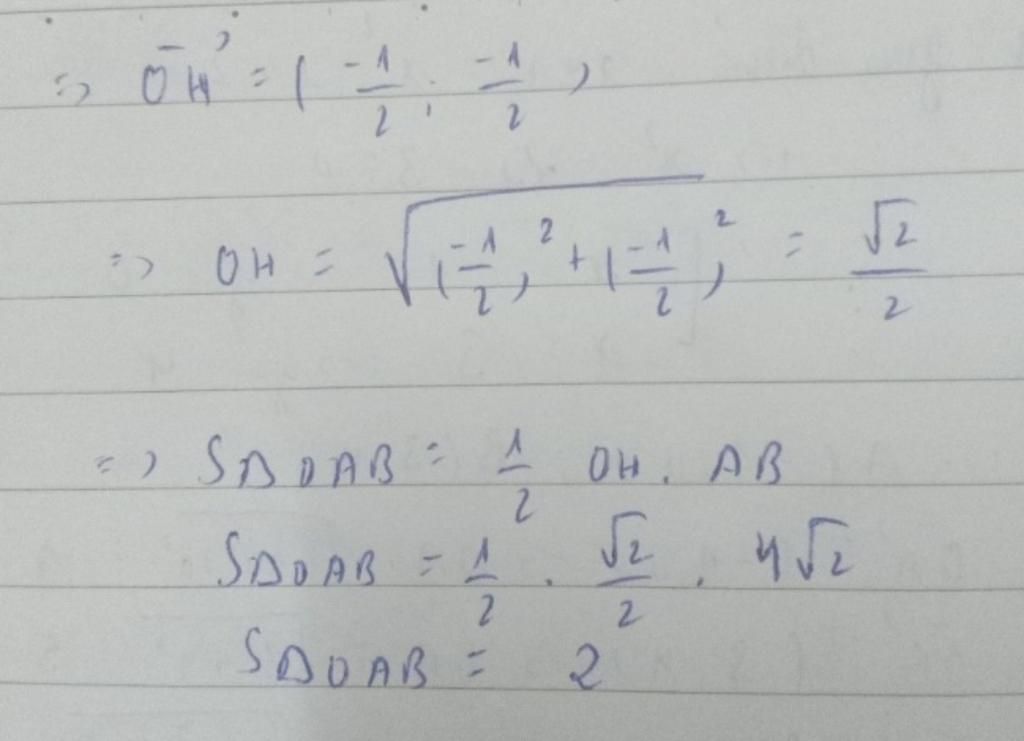 => OH⃗ = (-1/2; -1/2)
=> OH = √((-1/2)² + (-1/2)²) = √2/2
=> SΔOAB = 1/2 OH. AB
SΔOAB = 1/2 . √2/2 . 4√2
SΔOAB = 2